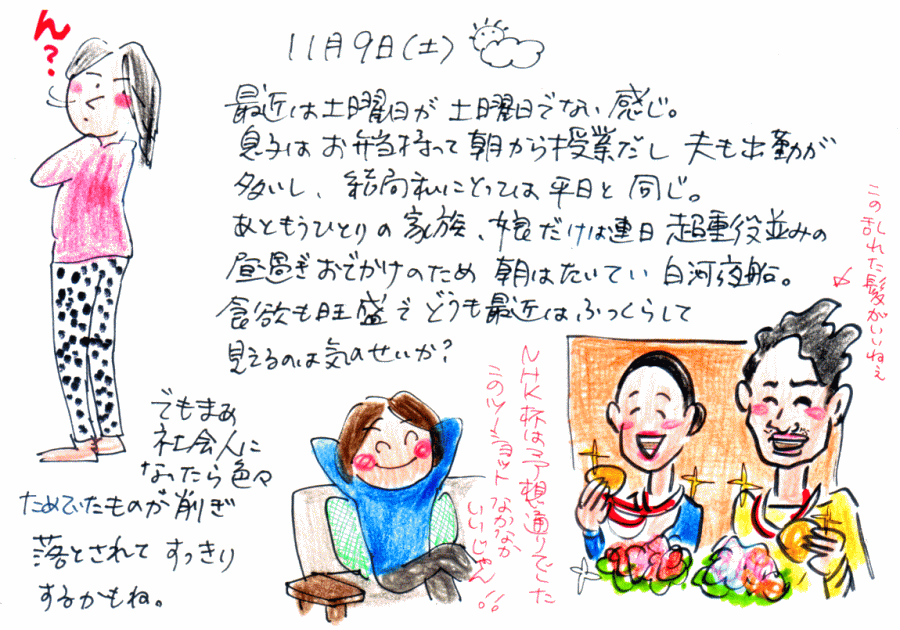 ん?
11月9日(土)
最近は土曜日が 土曜日でない感じ。
息子は お弁当持って 朝から授業だし 夫も出勤が
多いし、結局私にとっては 平日と同じ。
あともうひとりの家族、娘だけは連日 超重役並みの
昼過ぎおでかけのため 朝はたいてい 白河夜船。
食欲も旺盛で どうも最近は ふっくらして
見えるのは気のせいか?
でもまぁ
社会人に
なったら色々
ためていたものが削ぎ
落とされて すっきり
するかもね。
この乱れた髪がいいねぇ
NHK杯は予想通りでした
このツーショット なかなか
いいじゃん!!